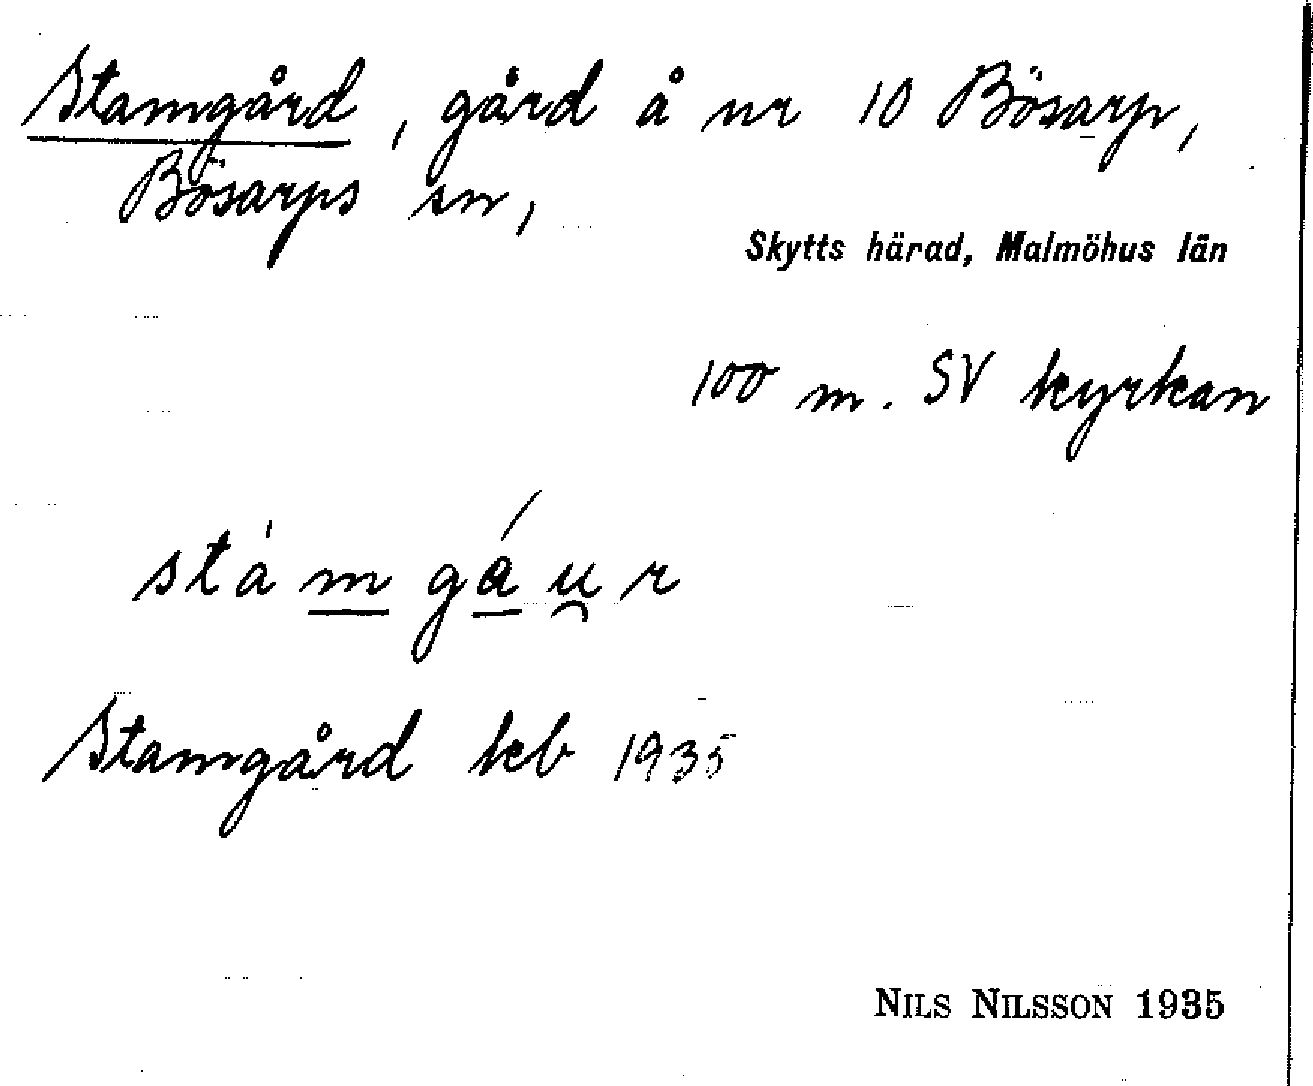 Stamgård, gård å nr 10 Bösarp,
Bösarps sn,
Skytts härad, Malmöhus län
100 m. SV kyrkan
stàmgáu̯r
Stamgård kb 1935
NILS NILSSON 1935